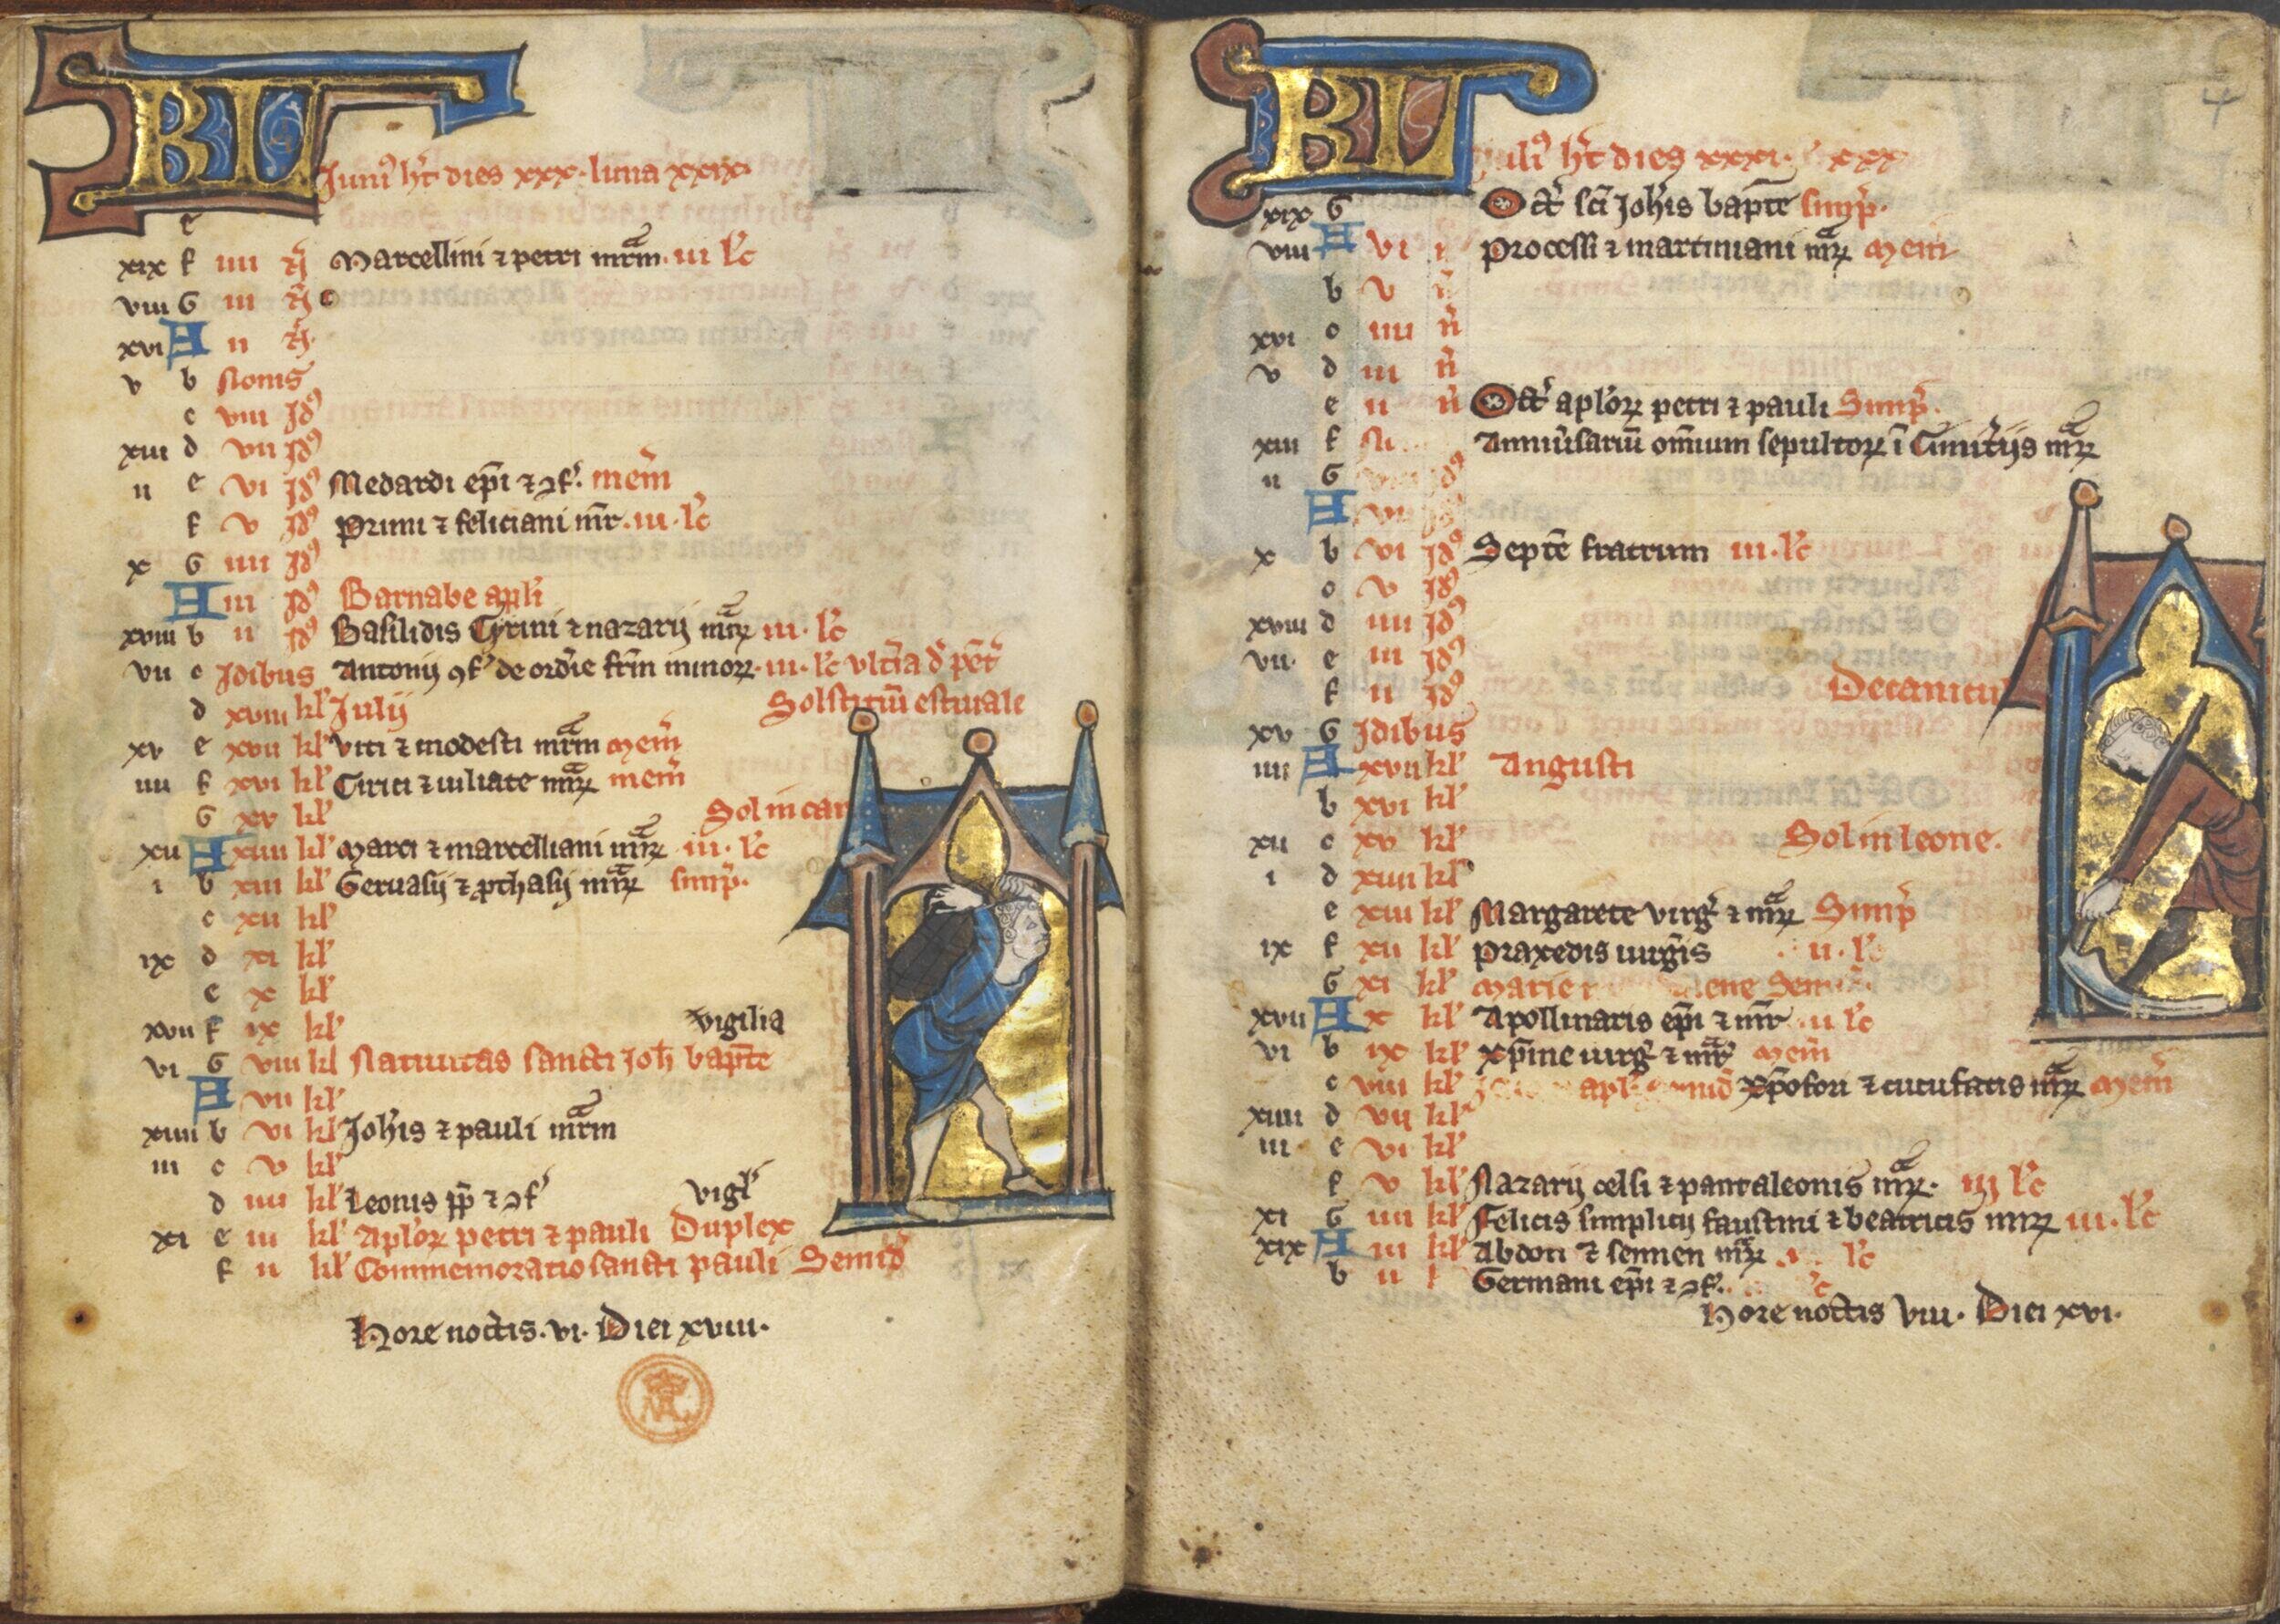 KL
Juni⁹ h't dies xxx. luna xxix.
e
xix f iiii n' Marcellini ⁊ petri mr̄m. iii lc̄
viii G iii n' c
xvi A ii n'
v b Nonis
c viii Id⁹
xiii d vii Id⁹
ii e vi Id⁹ Medardi ep̄i ⁊ ɔf'. mem̄
f v Id⁹ Primi ⁊ feliciani mr̄. iii. lc̄
x G iiii Id⁹
A iii Id⁹ Barnabe apl'i
xviii b ii Id⁹ Basilidis Cyrini ⁊ nazarij mr̄ꝝ iii. lc̄
vii c Idibus Antonij ɔf' de ordīe frm̄ minoꝝ. iii. lc̄ vltīa d' pēt'
d xviii kl' Julij Solstitiū estiuale
xv e xvii kl' Viti ⁊ modesti mr̄m mem̄
iiii f xvi kl' Cirici ⁊ iuliate mr̄ꝝ mem̄
G xv kl' Sol in can
xii A xiiii kl' Marci ⁊ marcelliani mr̄ꝝ iii. lc̄
i b xiii kl' Geruasij ⁊ ꝓthasij mr̄ꝝ simp̄.
c xii kl'
ix d xi kl'
e x kl'
xvii f ix kl' vigilia
vi G viii kl Natiuitas sancti Joh̄ bapt̄e
A vii kl'
xiiii b vi kl Joh'is ⁊ pauli mr̄m
iii c v kl'
d iiii kl' Leonis pp̄ ⁊ ɔf' vigl'
xi e iii kl' Apl'oꝝ petri ⁊ pauli Duplex
f ii kl' Commemoratio sancti pauli Semid'
Hore noctis. vi. Diei xviii.
KL
uli⁹ h't dies xxxi. xxx
4
xix G Oct' sc̄i Joh'is bapt̄e simp̄.
viii A vi Processi ⁊ martiniani mr̄ꝝ mem̄
b v n'
xvi c iiii n'
v d iii n'
e ii n' Oct' apl'oꝝ petri ⁊ pauli Simp̄.
xiii f Anniu'sariū om̄ium sepultoꝝ ī Cimit'ijs mr̄ꝝ
ii G Id⁹
A vii
x b vi Id⁹ Septē fratrum iii. lc̄
c v Id⁹
xviii d iiii Id⁹
vii. e iii Id⁹
f ii Id⁹ Decanicul
xv G Idibus
iiii A xvii kl' Augusti
b xvi kl'
xii c xv kl' Sol in leone.
i d xiiii kl'
e xiii kl' Margarete virg' ⁊ mr̄ꝝ Simp̄
ix f xii kl' Praxedis uirgīs ii. lc̄
G xi kl' Marie ene Sem
xvii A x kl' Apollinaris ep̄i ⁊ mr̄ ii lc̄
vi b ix kl' Xp̄ine uirg' ⁊ mr̄ mem̄
c viii kl' apl' Xp̄ofori ⁊ cucufatis mr̄ꝝ mem̄
xiiii d vii kl'
iii e vi kl'
f v kl' Nazarij celsi ⁊ pantaleonis mr̄ꝝ. iij lc̄
xi G iiii kl' Felicis simplicij faustini ⁊ beatricis mr̄ꝝ iii. lc̄
xix A iii kl' Abdon ⁊ sennen mr̄ꝝ lc̄
b ii Germani ep̄i ⁊ ɔf'.
Hore noctis viii. Diei xvi.